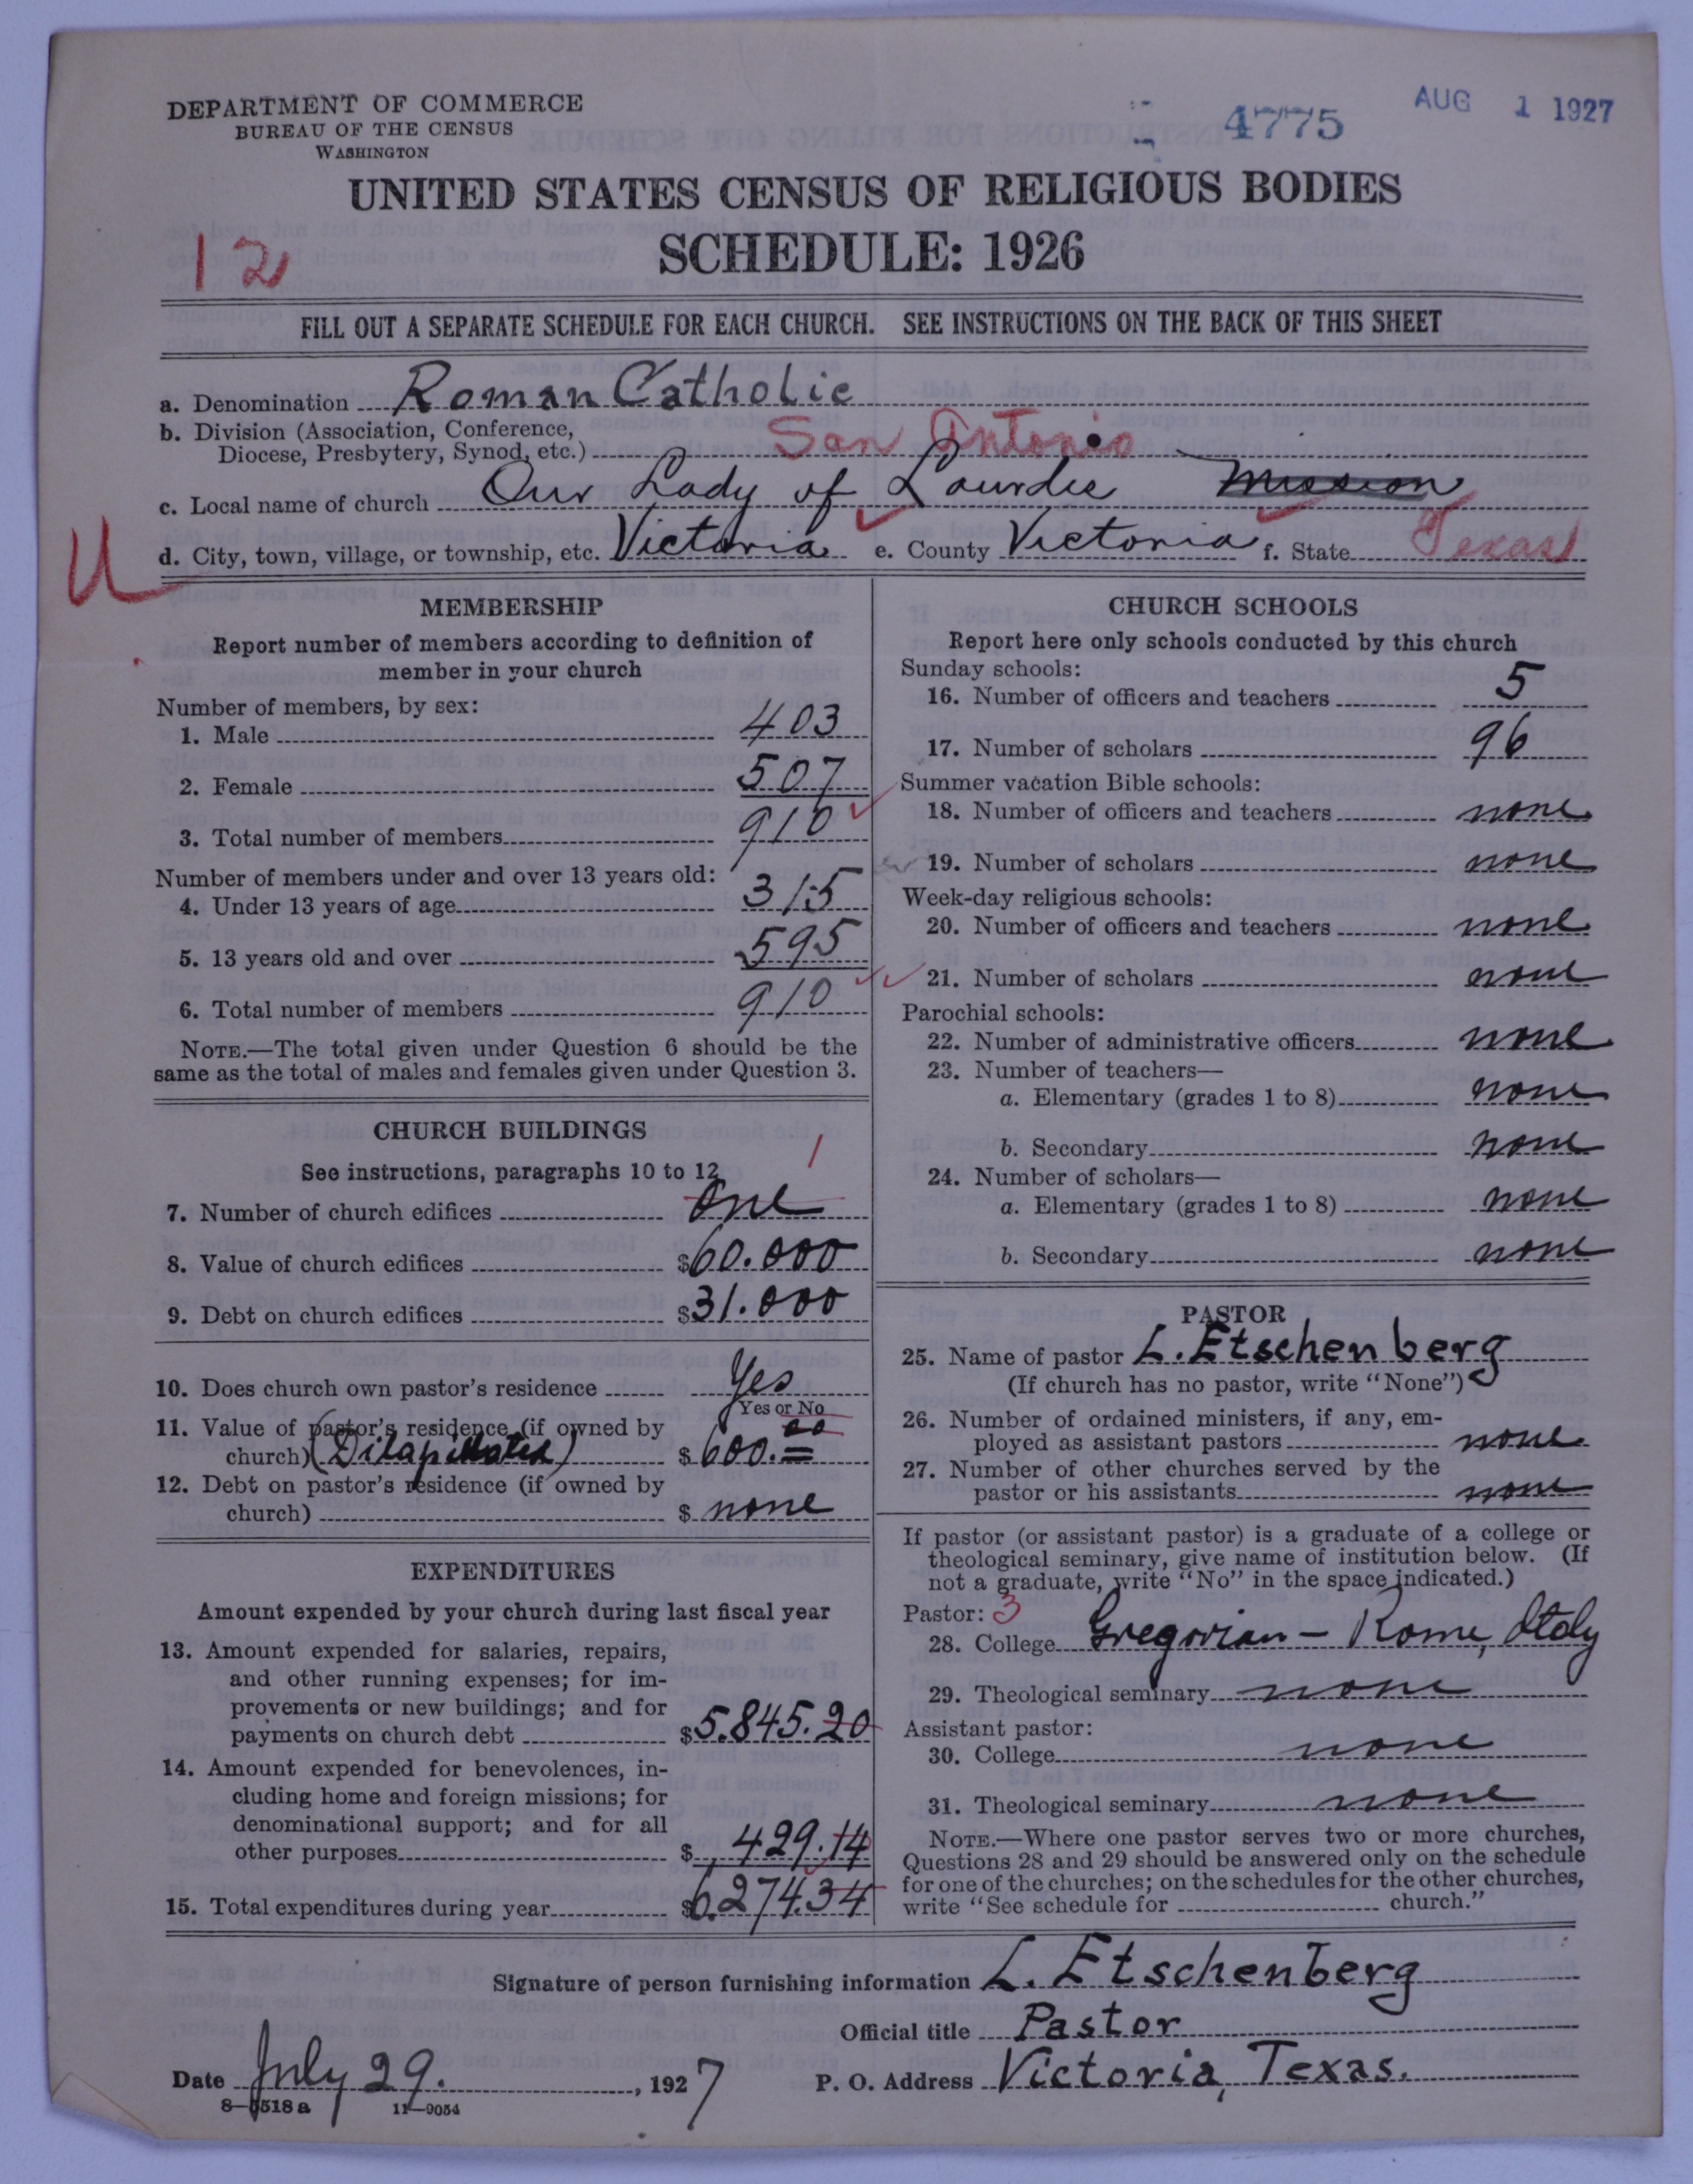 DEPARTMENT OF COMMERCE
BUREAU OF THE CENSUS
WASHINGTON
4775
AUG 1 1927
UNITED STATES CENSUS OF RELIGIOUS BODIES
SCHEDULE: 1926
12
FILL OUT A SEPARATE SCHEDULE FOR EACH CHURCH. SEE INSTRUCTIONS ON THE BACK OF THIS SHEET
a. Denomination Roman Catholic
b. Division (Association, Conference,
Diocese, Presbytery, Synod, etc.) San Antonio
c. Local name of church Our Lady of Lourdes Mission
d. City, town, village, or township, etc. Victoria e. County Victoria f. State Texas
U
MEMBERSHIP
Report number of members according to definition of
member in your church
Number of members, by sex:
1. Male 403
2. Female 507
3. Total number of members 910
Number of members under and over 13 years old:
4. Under 13 years of age 315
5. 13 years old and over 595
6. Total number of members 910
NOTE.—The total given under Question 6 should be the
same as the total of males and females given under Question 3.
CHURCH BUILDINGS
See instructions, paragraphs 10 to 12
1
7. Number of church edifices One
8. Value of church edifices $60.000
9. Debt on church edifices $31.000
10. Does church own pastor's residence Yes
Yes or No
11. Value of pastor's residence (if owned by
church) (Dilapidated) $600.00
12. Debt on pastor's residence (if owned by
church) $ none
EXPENDITURES
Amount expended by your church during last fiscal year
13. Amount expended for salaries, repairs,
and other running expenses; for im-
provements or new buildings; and for
payments on church debt $5.845.20
14. Amount expended for benevolences, in-
cluding home and foreign missions; for
denominational support; and for all
other purposes $ 429.14
15. Total expenditures during year $6.274.34
CHURCH SCHOOLS
Report here only schools conducted by this church
Sunday schools:
16. Number of officers and teachers 5
17. Number of scholars 96
Summer vacation Bible schools:
18. Number of officers and teachers none
19. Number of scholars none
Week-day religious schools:
20. Number of officers and teachers none
21. Number of scholars none
Parochial schools:
22. Number of administrative officers none
23. Number of teachers—
a. Elementary (grades 1 to 8) none
b. Secondary none
24. Number of scholars—
a. Elementary (grades 1 to 8) none
b. Secondary none
PASTOR
25. Name of pastor L. Etschenberg
(If church has no pastor, write "None")
26. Number of ordained ministers, if any, em-
ployed as assistant pastors none
27. Number of other churches served by the
pastor or his assistants none
If pastor (or assistant pastor) is a graduate of a college or
theological seminary, give name of institution below. (If
not a graduate, write "No" in the space indicated.)
Pastor: 3
28. College Gregorian - Rome, Italy
29. Theological seminary none
Assistant pastor:
30. College none
31. Theological seminary none
NOTE.—Where one pastor serves two or more churches,
Questions 28 and 29 should be answered only on the schedule
for one of the churches; on the schedules for the other churches,
write "See schedule for church."
Signature of person furnishing information L. Etschenberg
Official title Pastor
Date July 29. , 1927 P. O. Address Victoria, Texas.
8—5518 a 11—9054